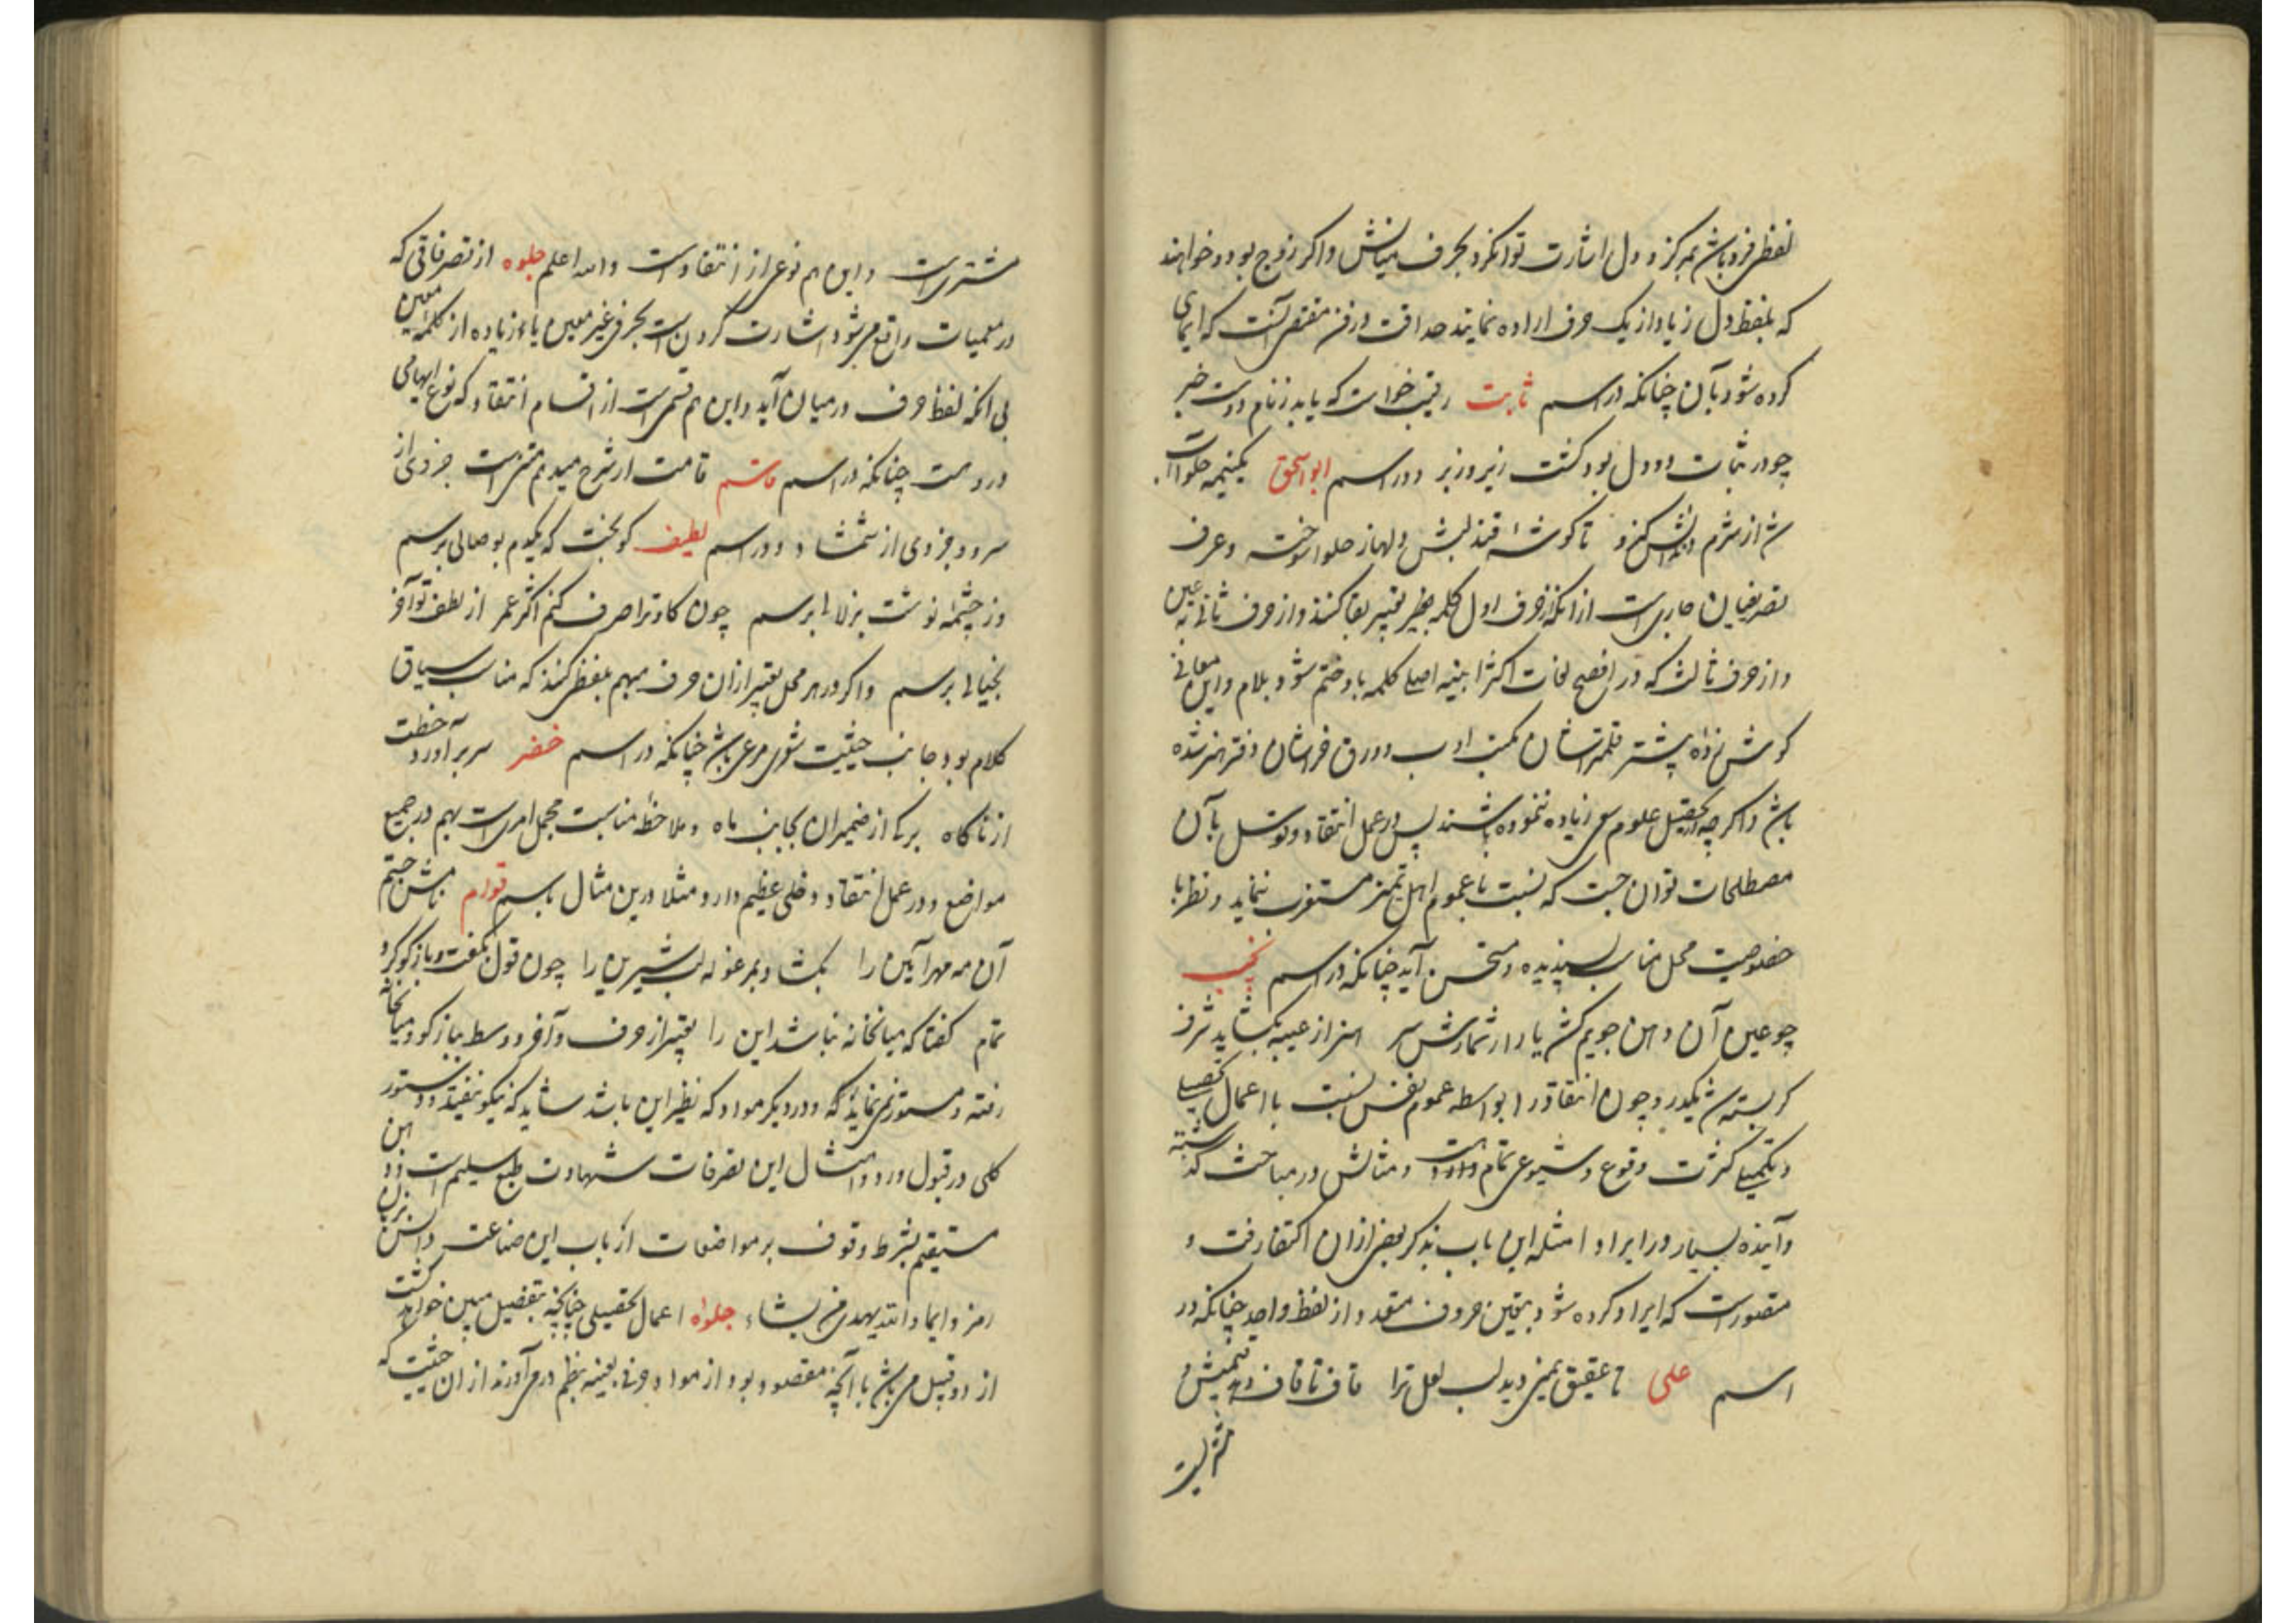 لفظی فرد باشد بمرکز و دل اشارت توان کرد بحرف میانش و اگر زوج بود و خواهند
که بلفظ دل زیاده از یک حرف اراده نمایند حداقت در فن مقتضی آنست که ایمای
کرده شود بآن چنانکه در اسم ثابت رقیب خواست که یابد ز نام دوست خبر
چو در ثبات دو دل بود کشت زیر و زبر و در اسم ابواسحق یکنیمه حلوا
از شرم کند و تا کوشهٔ قند لبش دلها ز حلوا سوخته و عرف
تصریفیان جاری است از آنکه از حرف اول کلمه تعبیر بفا کنند و از حرف ثانی به عین
و از حرف ثالث که در افصح لغات اکثر ابنیه اصلی کلمه باو ختم شود بلام و این معانی
کوش زد پیشتر قلمتراشان مکتب ادب و ورق خراشان دفتر هنر شده
باشد اگر چه در تحصیل علوم سعی زیاده ننموده باشند پس در عمل انتقاد و توسل بآن
مصطلحات توان جست که نسبت با عموم اهل تمیز مستغرب ننماید و نظر با
خصوصیت محل مناسب پسندیده و مستحسن آید چنانکه در اسم نجیب
چو عین آن دهن جویم کش یا دار شمارش سر از عیبه بکشاید شرف
کر بسته و چون انتقاد را بواسطه عموم نفس نسبت با اعمال تحصیلی
و تکمیلی کثرت وقوع و شیوعی تمام واردست و مثالش در مباحث کذشته
و آینده بسیار در ایراد امثله این باب بذکر بعضی از آن اکتفا رفت و
مقصورست که ایراد کرده شود بتعین حروف متعدد از لفظ واحد چنانکه در
اسم علی تا عقیق یمنی دید لب لعل ترا قاف تا قاف
مشتریست
مشتریست و این هم نوعی از انتقادست والله اعلم جلوه از تصرفاتی که
در معمیات واقع میشود اشارت کردن است بحرفی غیر معین یا زیاده از کلمه معین
بی آنکه لفظ حرف در میان آید و این هم قسمی است از اقسام انتقاد که نوع ابهامی
دروست چنانکه در اسم قاسم قامت ار شرح میدهم متنیست جزوی از
سرو و جزوی از شمشاد و در اسم لطیف کو بخت که یکدم بوصالی برسم
وز چشمهٔ نوشت بزلالی برسم چون کاه ترا صرف کنم اکثر عمر از لطف تو آخر
بخیالی برسم و اگر در هر محل تعبیر از آن حرف مبهم بلفظی کنند که مناسب سیاق
کلام بود و جانب حیثیت شعری مرعی باشد چنانکه در اسم خضر سر بر آورد خطت
از ناکاه برکی از ضمیران بجانب ماه و ملاحظه مناسبت مجمل امریست مهم در جمیع
مواضع و در عمل انتقاد دخلی عظیم دارد مثلا درین مثال باسم قوام
آن مه مهر آیین را بکشاد بمرغوله لب شیرین را چون قول بگفت و باز کو کرد
تمام گفتا که میانخانه نباشد این را تعبیر از حرف و آخر و وسط بباز کو و میانخانه
رفته و مستور نمی‌نماید که در دیگر مواد که نظیر این باشد شاید که نیکو نیفتد و دستور
کلی در قبول و رد امثال این تصرفات شهادت طبع سلیمست و ذهن
مستقیم بشرط وقوف بر مواضعات ارباب این صناعت و دانستن
رمز و ایما والله یهدی من یشاء جلوه اعمال تحصیلی چنانچه بتفصیل مبین خواهد کشت
از دو قبیل می باشد با آنچه مقصود بود از مواد حرفی بعینه بنظم در می‌آورند از آن حیثیت که